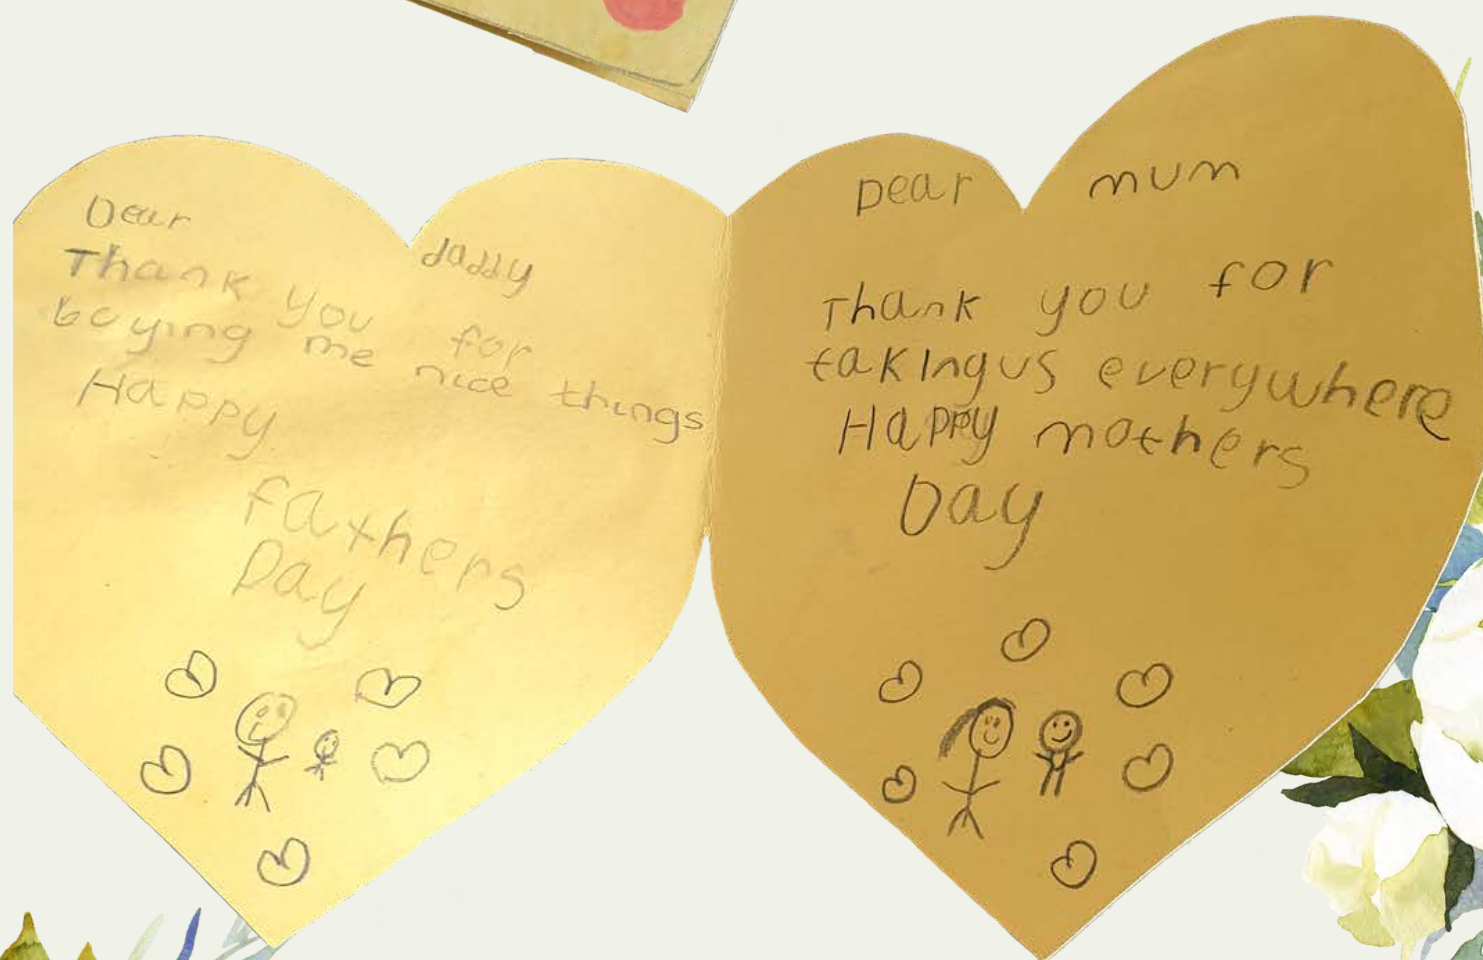 Dear daddy
Thank you for
buying me nice things
Happy
fathers
Day
Dear mum
Thank you for
takingus everywhere
Happy mothers
Day